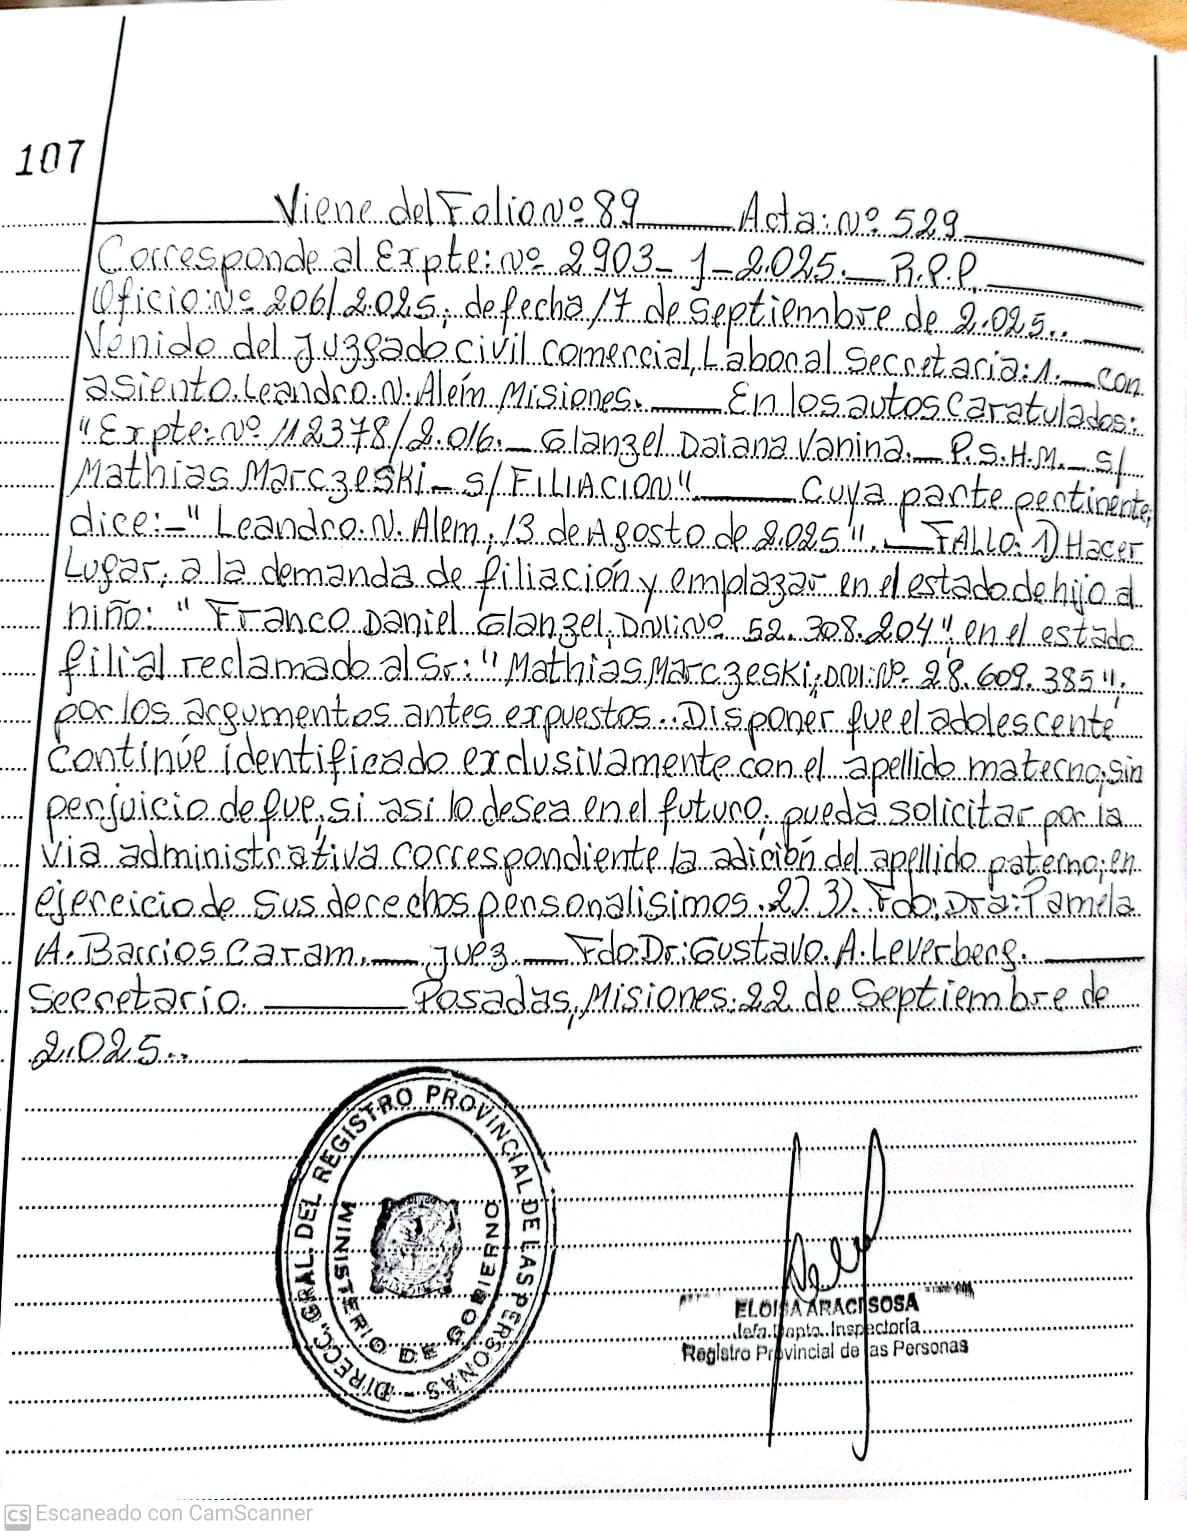 107
Viene del Folio Nº 89 Acta: Nº 529
Corresponde al Expte: Nº 2903-1-2.025._ R.P.P.
Oficio: Nº 206/2.025, de fecha 17 de Septiembre de 2.025..
Venido del Juzgado Civil Comercial, Laboral Secretaria: 1. con
asiento Leandro. N. Alem Misiones. En los autos caratulados:
"Expte: Nº 112378/2.016._ Glanzel Daiana Vanina._ P.S.H.M. s/
Mathias Marczeski_ s/FILIACION" Cuya parte pertinente,
dice:_"Leandro. N. Alem, 13 de Agosto de 2.025". FALLO: 1) Hacer
Lugar, a la demanda de filiación y emplazar en el estado de hijo al
niño: "Franco Daniel Glanzel, DNI: Nº 52.308.204", en el estado
filial reclamado al Sr: "Mathias Marczeski, DNI: Nº 28.609.385",
por los argumentos antes expuestos.. Disponer que el adolescente
continúe identificado exclusivamente con el apellido materno, sin
perjuicio de que, si así lo desea en el futuro, pueda solicitar por la
via administrativa correspondiente la adición del apellido paterno, en
ejercicio de sus derechos personalisimos. 2). 3). Fdo: Dra: Pamela
A. Barrios Caram. Juez. Fdo: Dr: Gustavo. A. Leverberg.
Secretario. Posadas, Misiones. 22 de Septiembre de
2.025..
DIRECC. GRAL. DEL REGISTRO PROVINCIAL DE LAS PERSONAS
MINISTERIO DE GOBIERNO
ELOISA ARACI SOSA
Jefa Dpto. Inspectoría
Registro Provincial de las Personas
CS Escaneado con CamScanner